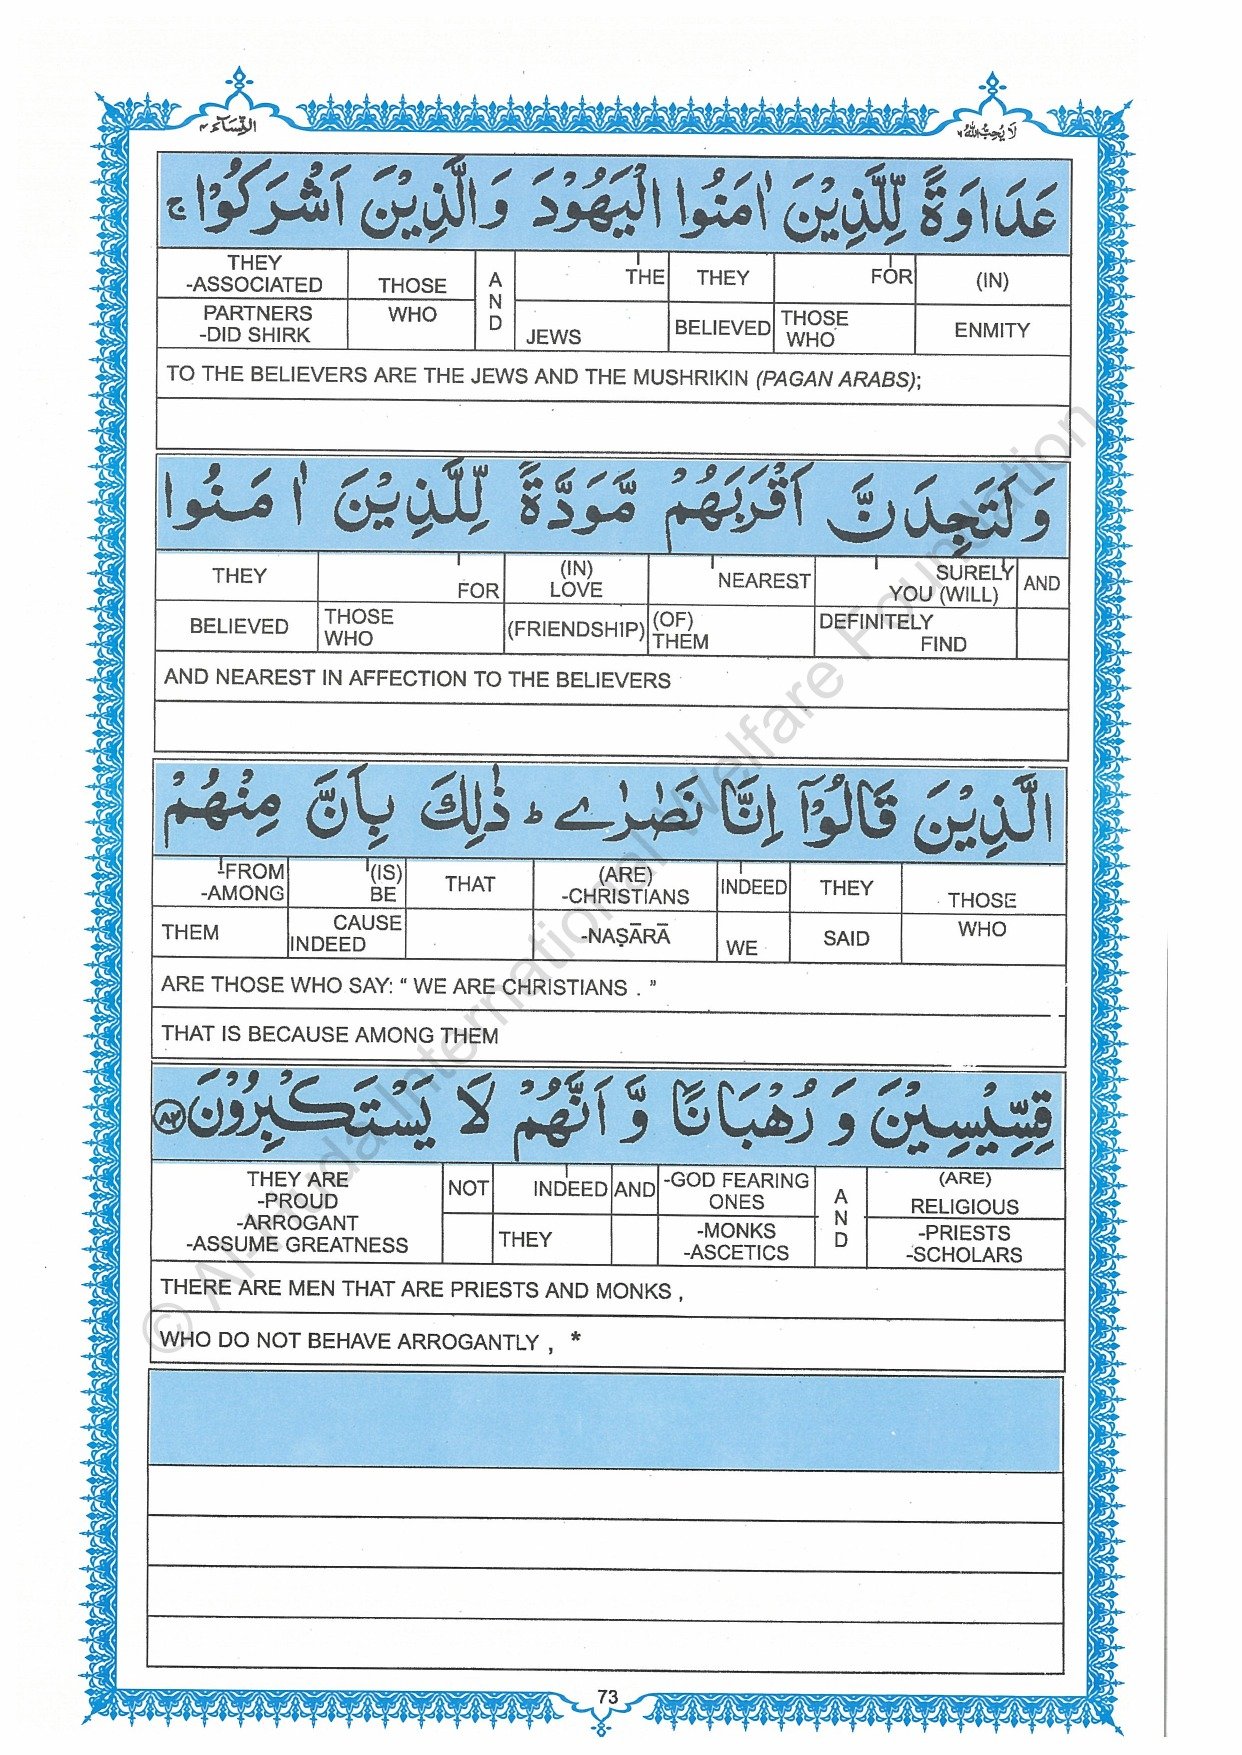 النِّسَآء ٤
لَا يُحِبُّ اللّٰهُ ٦
عَدَاوَةً لِّلَّذِيْنَ اٰمَنُوا الْيَهُوْدَ وَالَّذِيْنَ اَشْرَكُوْا ۚ
THEY -ASSOCIATED THOSE AND THE THEY FOR (IN)
PARTNERS -DID SHIRK WHO JEWS BELIEVED THOSE WHO ENMITY
TO THE BELIEVERS ARE THE JEWS AND THE MUSHRIKIN (PAGAN ARABS);
وَ لَتَجِدَنَّ اَقْرَبَهُمْ مَّوَدَّةً لِّلَّذِيْنَ اٰمَنُوا
THEY FOR (IN) LOVE NEAREST SURELY YOU (WILL) AND
BELIEVED THOSE WHO (FRIENDSHIP) (OF) THEM DEFINITELY FIND
AND NEAREST IN AFFECTION TO THE BELIEVERS
الَّذِيْنَ قَالُوْۤا اِنَّا نَصٰرٰے ؕ ذٰلِكَ بِاَنَّ مِنْهُمْ
-FROM -AMONG (IS) BE THAT (ARE) -CHRISTIANS INDEED THEY THOSE
THEM CAUSE INDEED -NAṢĀRĀ WE SAID WHO
ARE THOSE WHO SAY: “ WE ARE CHRISTIANS . ”
THAT IS BECAUSE AMONG THEM
قِسِّيْسِيْنَ وَ رُهْبَانًا وَّ اَنَّهُمْ لَا يَسْتَكْبِرُوْنَ ٨٢
THEY ARE -PROUD -ARROGANT -ASSUME GREATNESS NOT INDEED AND -GOD FEARING ONES AND (ARE) RELIGIOUS
THEY -MONKS -ASCETICS -PRIESTS -SCHOLARS
THERE ARE MEN THAT ARE PRIESTS AND MONKS ,
WHO DO NOT BEHAVE ARROGANTLY , *
73
© Al-Huda International Welfare Foundation